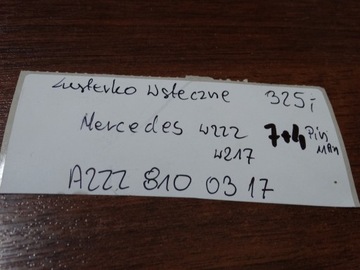 Lusterko wsteczne 325,-
Mercedes W222 7+4 Pin
W217 11Pin
A222 810 03 17